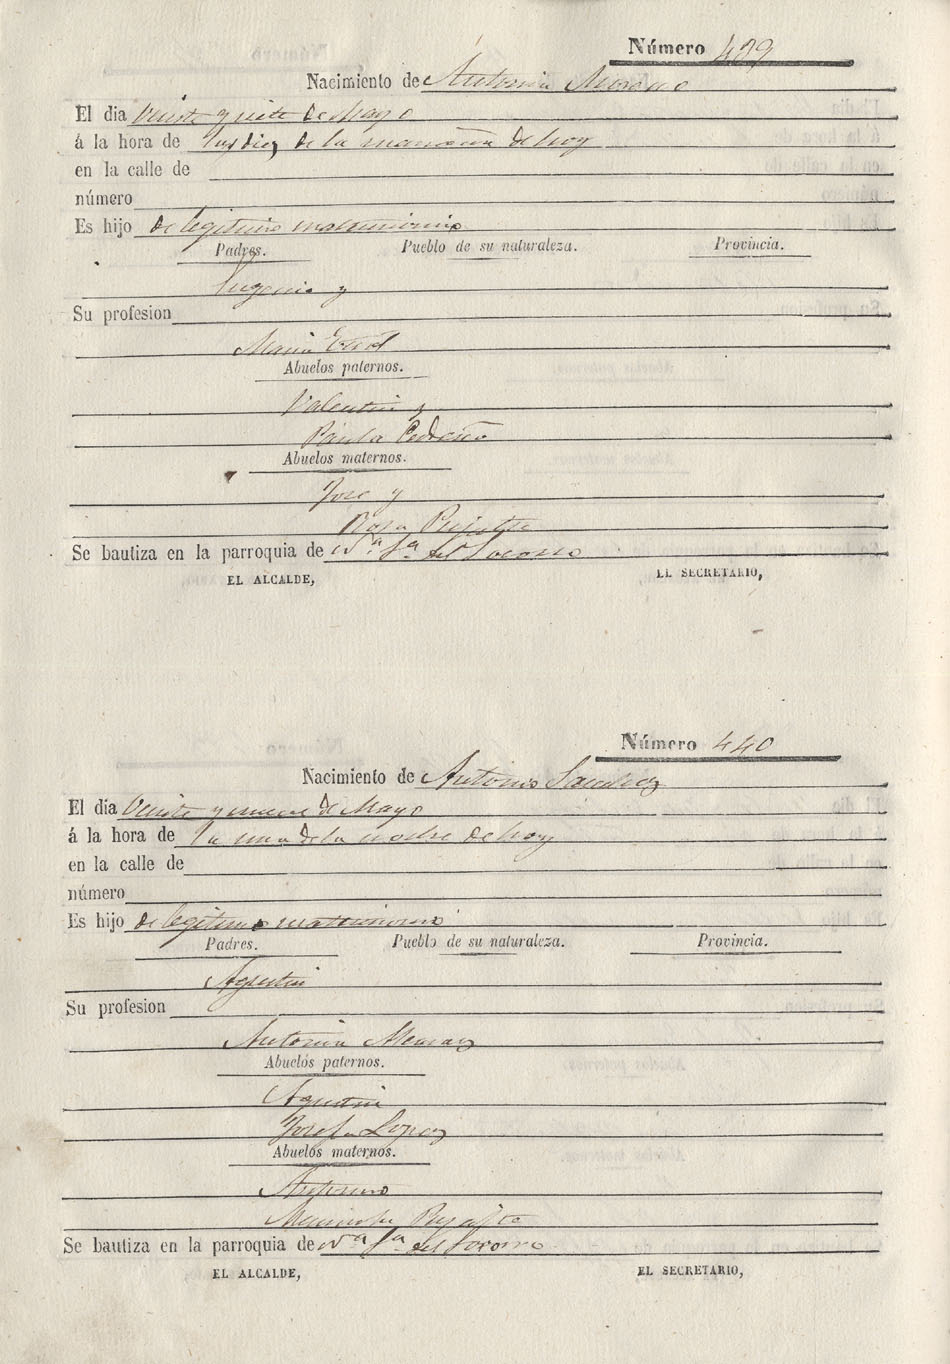 Número 439
Nacimiento de Antonia Moreno
El dia veinte y siete de Mayo
á la hora de las diez de la mañana de hoy
en la calle de
número
Es hijo de legitimo matrimonio
Padres. Pueblo de su naturaleza. Provincia.
Eugenio y
Su profesion
Maria
Abuelos paternos.
Valentin y
Paula Cedeño
Abuelos maternos.
Jose y
Rosa
Se bautiza en la parroquia de Nª Sª del Socorro
EL ALCALDE, EL SECRETARIO,
Número 440
Nacimiento de Antonio Sanchez
El día veinte y nueve de Mayo
á la hora de la una de la noche de hoy
en la calle de
número
Es hijo de legitimo matrimonio
Padres. Pueblo de su naturaleza. Provincia.
Agustin
Su profesion
Antonia
Abuelos paternos.
Agustin
Josefa Lopez
Abuelos maternos.
Antonio
Manuela
Se bautiza en la parroquia de Nª Sª del Socorro
EL ALCALDE, EL SECRETARIO,